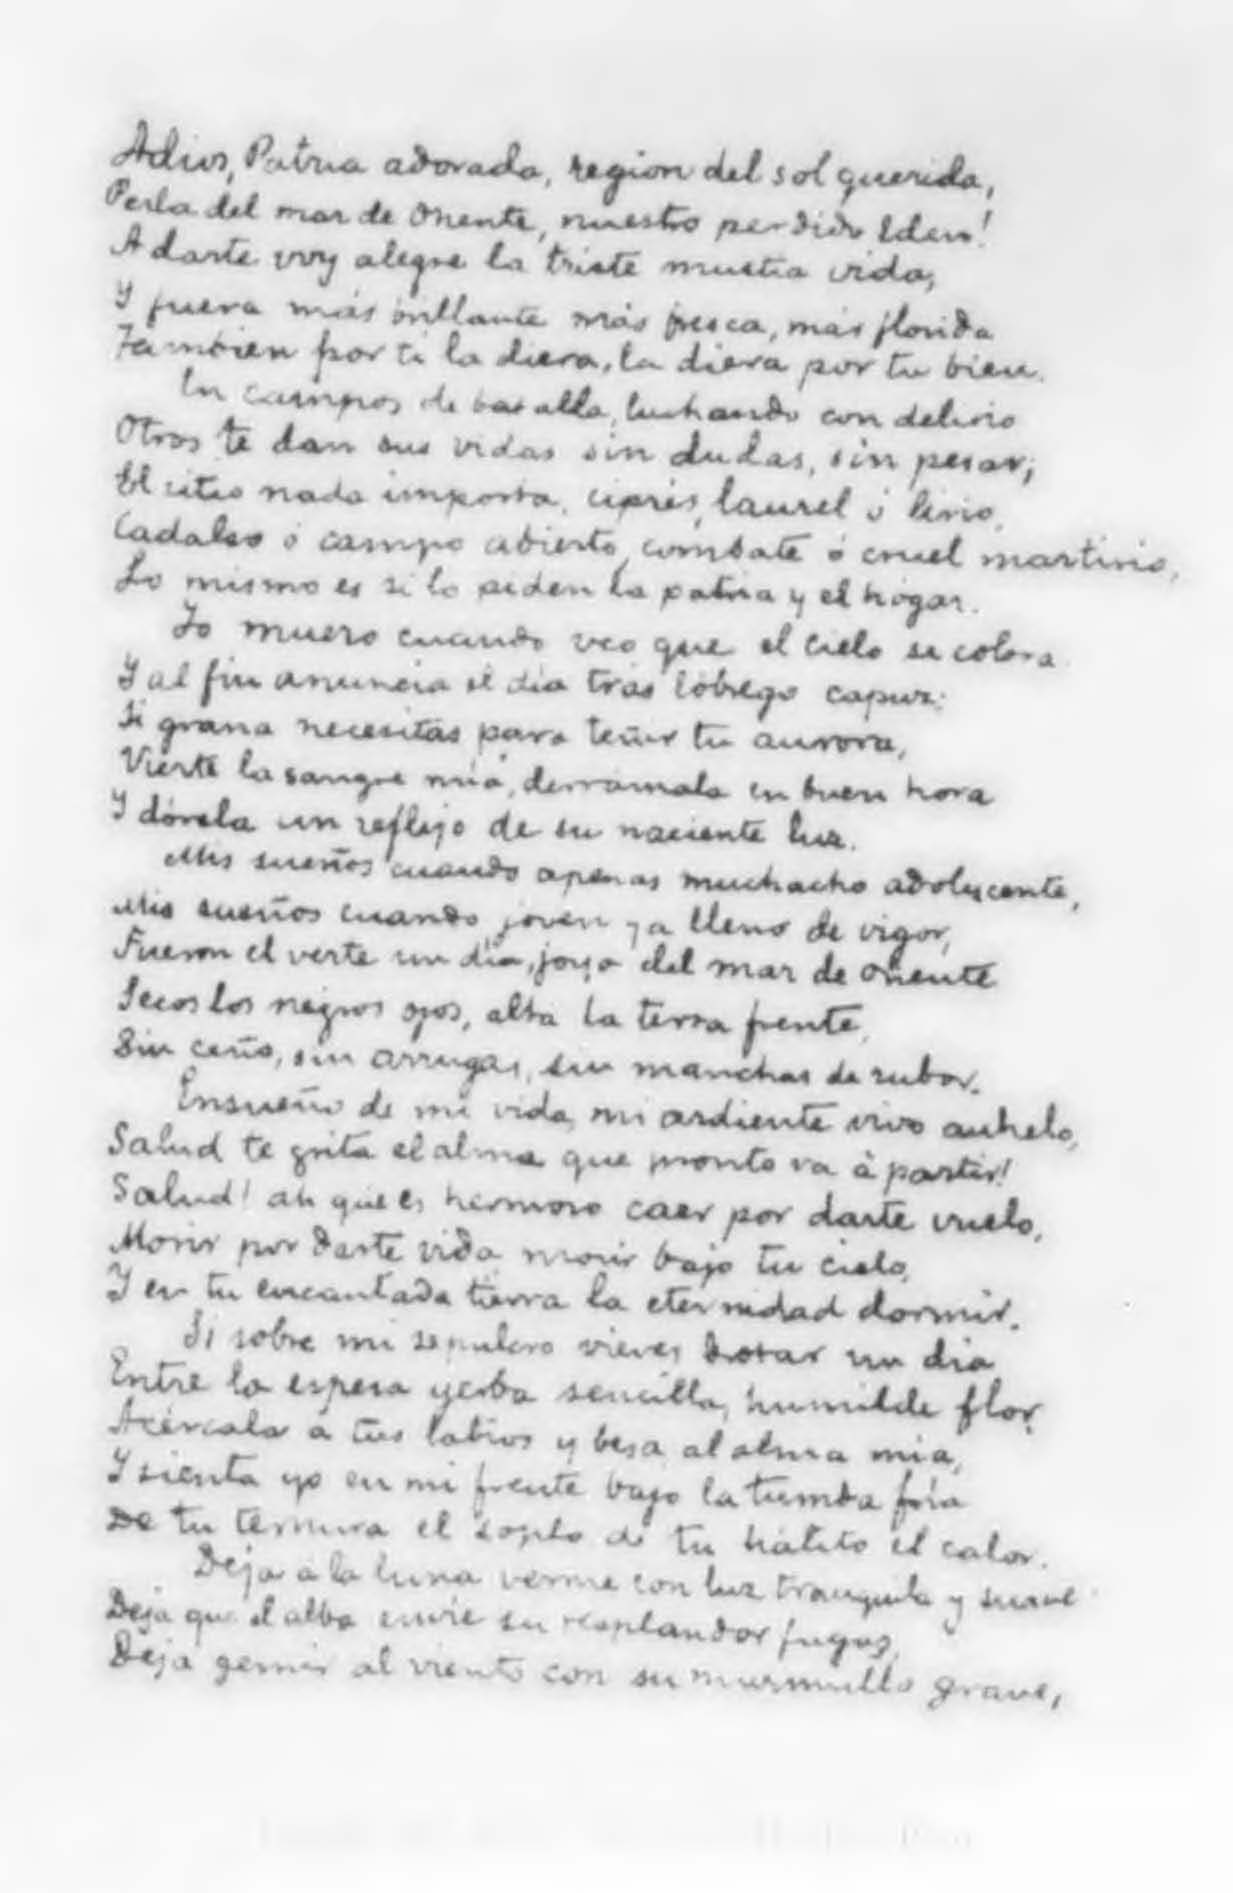 Adios, Patria adorada, region del sol querida,
Perla del mar de Oriente, nuestro perdido Eden!
A darte voy alegre la triste mustia vida,
Y fuera más brillante más fresca, más florida
Tambien por tí la diera, la diera por tu bien.
En campos de batalla, luchando con delirio
Otros te dan sus vidas sin dudas, sin pesar;
El sitio nada importa, ciprés, laurel ó lirio,
Cadalso ó campo abierto, combate ó cruel martirio,
Lo mismo es si lo piden la patria y el hogar.
Yo muero cuando veo que el cielo se colora
Y al fin anuncia el día trás lóbrego capuz;
Si grana necesitas para teñir tu aurora,
Vierte la sangre mía, derrámala en buen hora
Y dórela un reflejo de su naciente luz.
Mis sueños cuando apenas muchacho adolescente,
Mis sueños cuando joven ya lleno de vigor,
Fueron el verte un día, joya del mar de oriente
Secos los negros ojos, alta la tersa frente,
Sin ceño, sin arrugas, sin manchas de rubor.
Ensueño de mi vida, mi ardiente vivo anhelo,
Salud te grita el alma que pronto va á partir!
Salud! ah que es hermoso caer por darte vuelo,
Morir por darte vida, morir bajo tu cielo,
Y en tu encantada tierra la eternidad dormir.
Si sobre mi sepulcro vieres brotar un dia
Entre la espesa yerba sencilla, humilde flor,
Acércala a tus labios y besa al alma mía,
Y sienta yo en mi frente bajo la tumba fría
De tu ternura el soplo de tu hálito el calor.
Deja á la luna verme con luz tranquila y suave
Deja que el alba envíe su resplandor fugaz,
Deja gemir al viento con su murmullo grave,